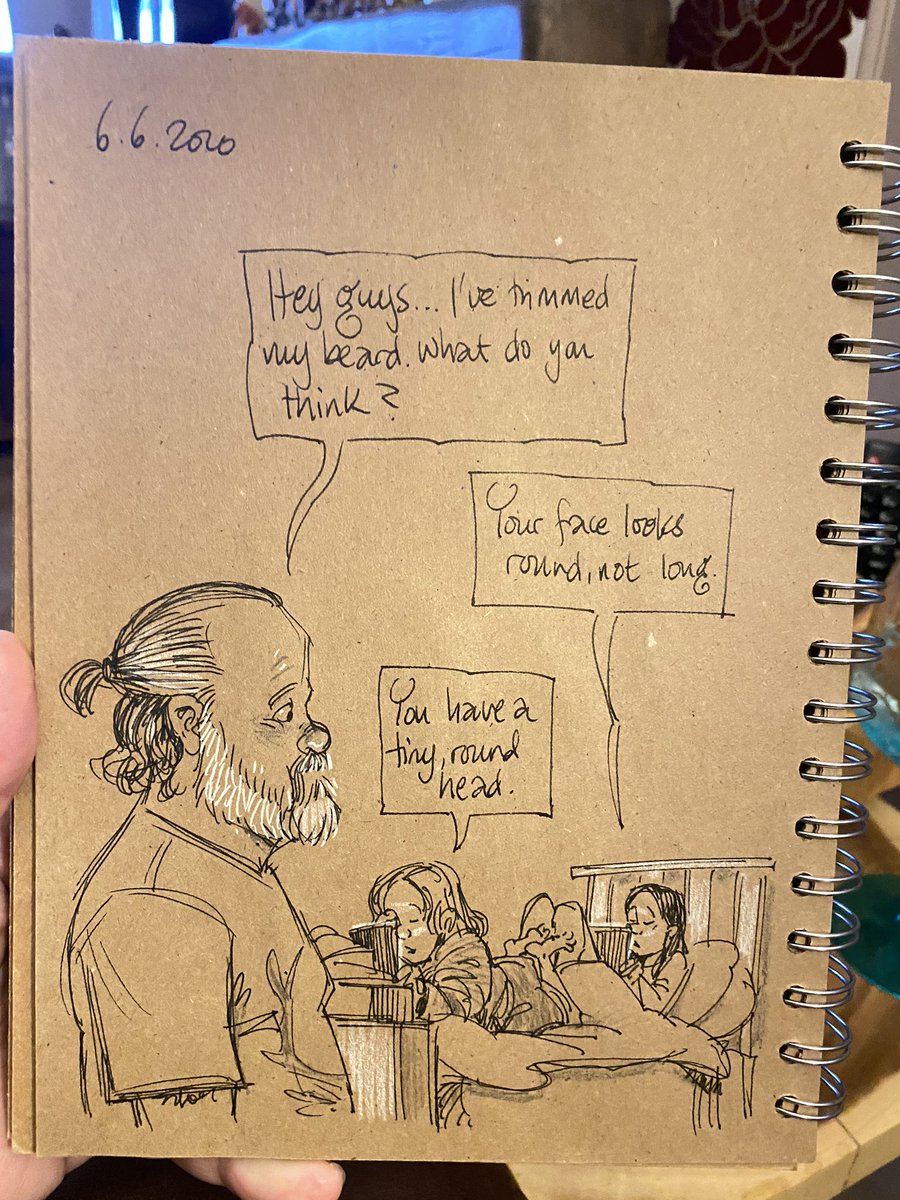 6.6.2020
Hey guys... I've trimmed
my beard. What do you
think?
Your face looks
round, not long.
You have a
tiny, round
head.